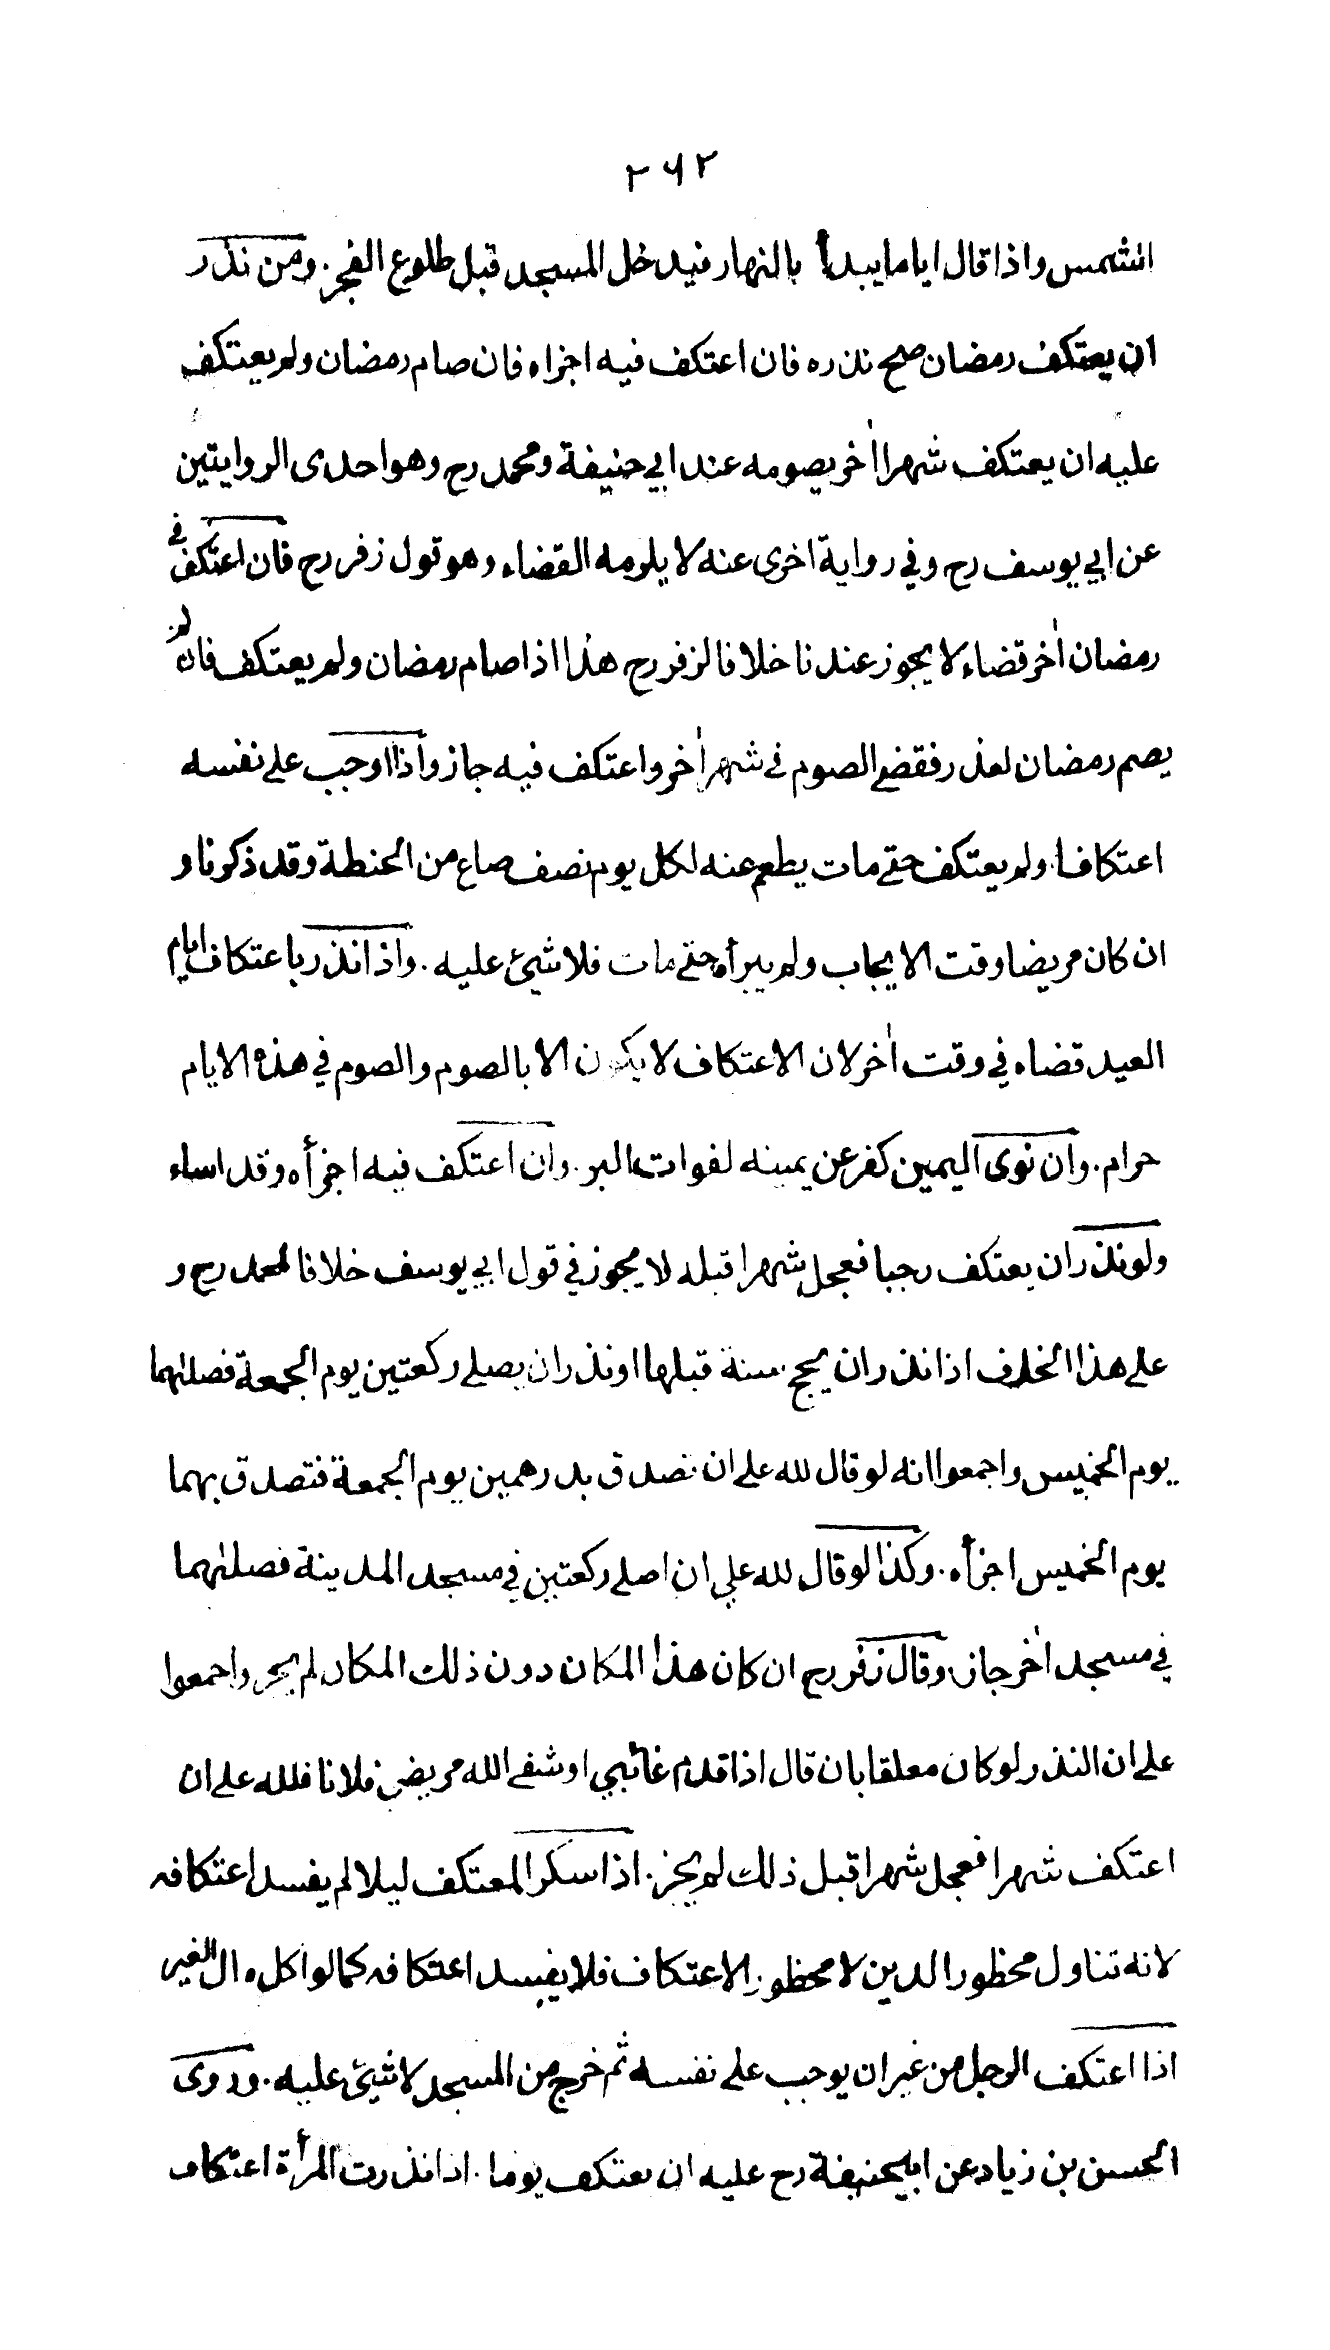 ٢٦٢
الشمس واذا قال اياما يبدأ بالنهار فيدخل المسجد قبل طلوع الفجر. ومن نذر
ان يعتكف رمضان صح نذره فان اعتكف فيه اجزاه فان صام رمضان ولم يعتكف
عليه ان يعتكف شهرا اٰخر يصومه عند ابي حنيفة ومحمد رح وهو احدى الروايتين
عن ابي يوسف رح وفي رواية اخرى عنه لا يلزمه القضاء وهو قول زفر رح فان اعتكف في
رمضان اٰخر قضاء لا يجوز عندنا خلافا لزفر رح هذا اذا صام رمضان ولم يعتكف فان لم
يصم رمضان لعذر فقضى الصوم في شهر اٰخر واعتكف فيه جاز واذا اوجب على نفسه
اعتكافا ولم يعتكف حتى مات يطعم عنه لكل يوم نصف صاع من الحنطة وقد ذكرنا و
ان كان مريضا وقت الايجاب ولم يبرأ حتى مات فلا شيئ عليه. واذا نذر باعتكاف ايام
العيد قضاه في وقت اٰخر لان الاعتكاف لا يكون الا بالصوم والصوم في هذه الايام
حرام. وان نوى اليمين كفر عن يمينه لفوات البر. وان اعتكف فيه اجزأه وقد اساء
ولو نذر ان يعتكف رجبا فعجل شهرا قبله لا يجوز في قول ابي يوسف خلافا لمحمد رح و
على هذا الخلاف اذا نذر ان يحج سنة قبلها او نذر ان يصلي ركعتين يوم الجمعة فصلٰهما
يوم الخميس واجمعوا انه لو قال لله علي ان تصدق بدرهمين يوم الجمعة فتصدق بهما
يوم الخميس اجزأه. وكذا لو قال لله علي ان اصلي ركعتين في مسجد المدينة فصلٰهما
في مسجد اٰخر جاز. وقال زفر رح ان كان هذا المكان دون ذلك المكان لم يجز واجمعوا
على ان النذر لو كان معلقا بان قال اذا قدم غائبي او شفى الله مريضي فلانا فلله علي ان
اعتكف شهرا فعجل شهرا قبل ذلك لم يجز. اذا سكر المعتكف ليلا لم يفسد اعتكافه
لانه تناول محظور الدين لا محظور الاعتكاف فلا يفسد اعتكافه كما لو اكل مال الغير
اذا اعتكف الرجل من غير ان يوجب على نفسه ثم خرج من المسجد لا شيئ عليه. وروى
الحسن بن زياد عن ابيحنيفة رح عليه ان يعتكف يوما. اذا نذرت المرأة اعتكاف